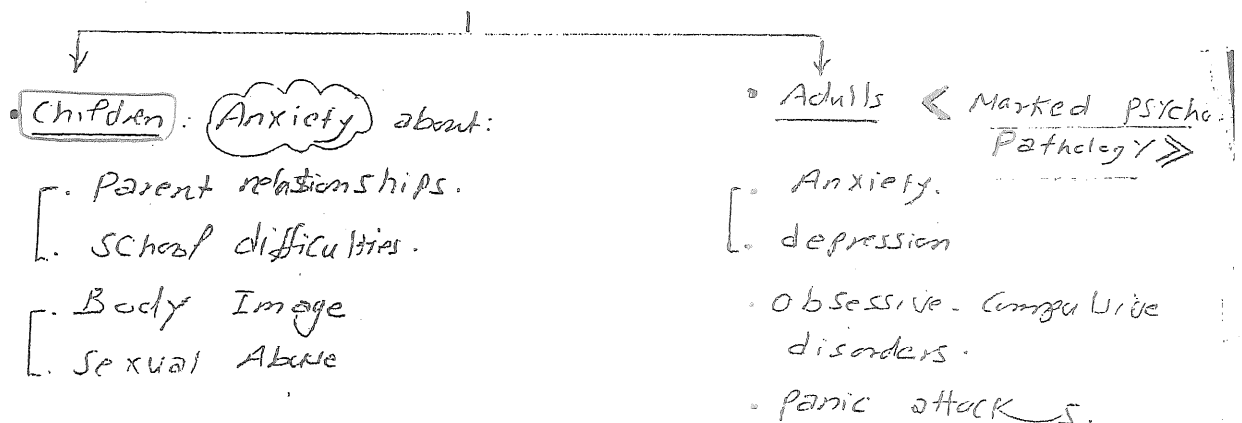 • Children : Anxiety about:
. Parent relationships.
. School difficulties.
. Body Image
. Sexual Abuse
• Adults << Marked psycho.
Pathology >>
. Anxiety.
. depression
. obsessive - Compulsive
disorders.
. panic attacks.